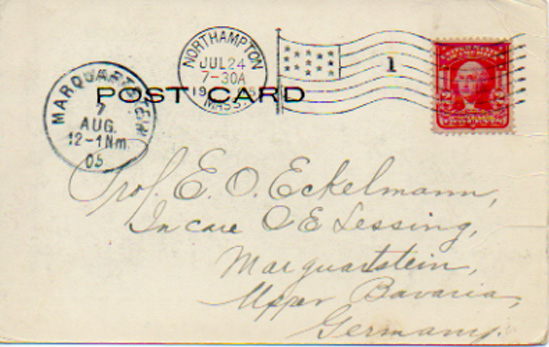 NORTHAMPTON
JUL 24
7-30A
19
MASS.
1
MARQUARTSTEIN
7
AUG.
12-1Nm.
05
POST CARD
Prof. E. O. Eckelmann,
In care O E Lessing,
Marquartstein,
Upper Bavaria,
Germany.